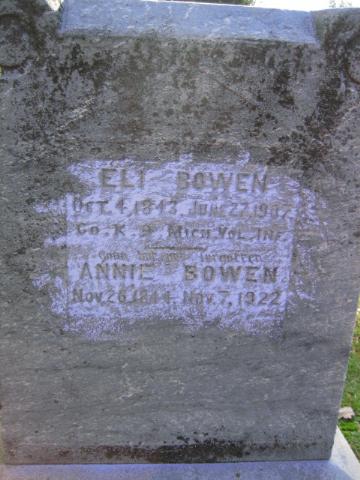 ELI BOWEN
OCT. 4, 1843. JUNE 27, 1907.
CO. K. 9 MICH VOL. INF.
Gone but not forgotten
ANNIE BOWEN
NOV. 26, 1844. NOV. 7, 1922